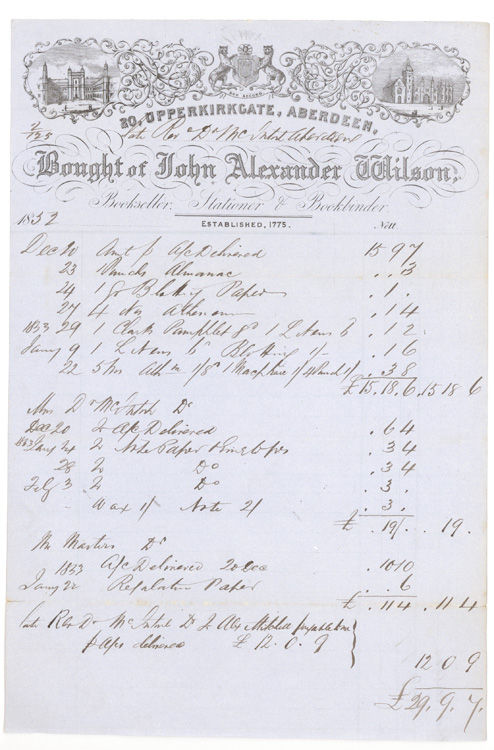 20, UPPERKIRKGATE, ABERDEEN,
Late Revd Dr Aberdeen
Bought of John Alexander Wilson,
Bookseller, Stationer & Bookbinder
ESTABLISHED, 1775.
1852
Dec 20 Amt p a/c Delivered 15 9 7
23 Punchs Almanac . . 3
24 1 Qr Blotting Paper . 1 .
27 4 Nos Athenaeum . 1 4
1853 29 1 Clark Pamphlet 8d 1 L News 6 . 1 2
Jany 9 1 L News 6 Blotting 1/- . 1 6
22 5 Nos Ath 1/8 1 1/ 1/ . 3 8
£15.18.6 15 18 6
Mrs Dr McIntosh Dr
Dec 20 To a/c Delivered . 6 4
1853 Jany 24 To Note Paper & Envelopes . 3 4
28 To Do . 3 4
Feby 3 To Do . 3 .
Wax 1/ Note 2/ . 3 .
£ . 19/. . 19 .
Mr Masters Dr
1853 a/c Delivered 20 Dec . 10 10
Jany 22 Paper . . 6
£ . 11 4 . 11 4
Late Rev Dr Dr To Alex Mitchell
p a/cs delivered £ 12. 0. 9
12 0 9
£29. 9. 7.